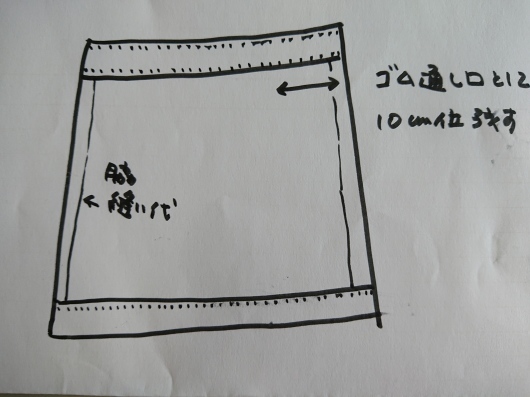 ゴム通し口として
10cm位残す
脇
縫い代